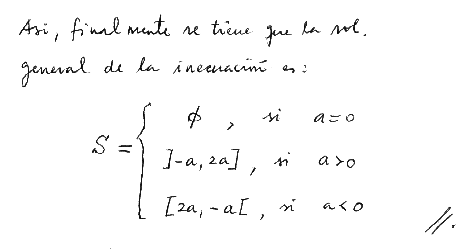 Asi, finalmente se tiene que la sol.
general de la inecuación es:
S = { ϕ , si a=0
]-a, 2a] , si a>0
[2a, -a[ , si a<0
//.